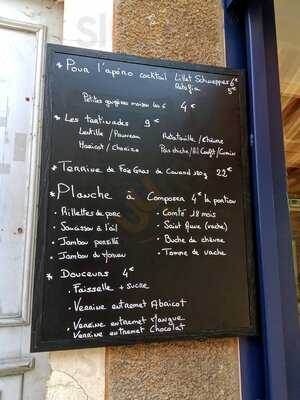 * Pour l'apéro cocktail Lillet Schweppes 6€
Ratafia 5€
Petites gougères maison les 6 4€
* Les tartinades 9€
Lentille / Pruneau Ratatouille / Chèvre
Haricot / Chorizo Pois chiche / Ail Confit / Cumin
* Terrine de Foie Gras de Canard 120g 22€
* Planche à Composer 4€ la portion
• Rillettes de porc • Comté 18 mois
• Saucisson à l'ail • Saint Aure (vache)
• Jambon persillé • Buche de chèvre
• Jambon du Morvan • Tomme de vache
* Douceurs 4€
• Faisselle + sucre
• Verrine entremet Abricot
• Verrine entremet Mangue
Verrine entremet Chocolat